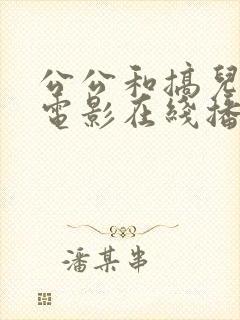 公公和搞兒
電影在綫播
潘某串